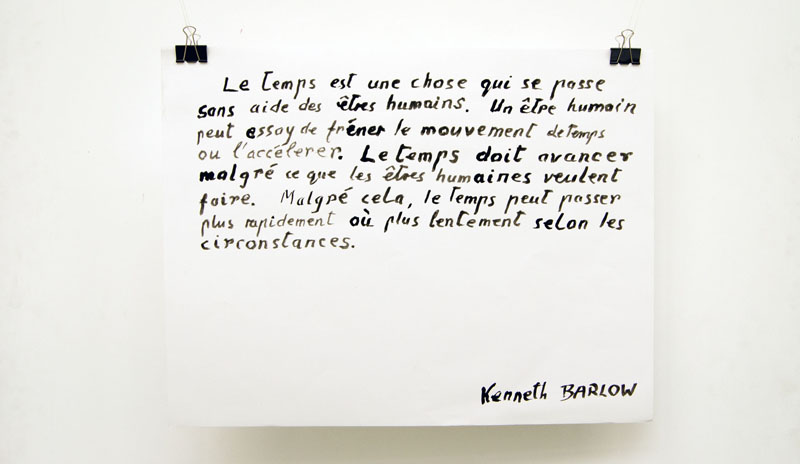 Le temps est une chose qui se passe
sans aide des êtres humains. Un être humain
peut essay de fréner le mouvement de temps
ou l'accélerer. Le temps doit avancer
malgré ce que les êtres humaines veulent
faire. Malgré cela, le temps peut passer
plus rapidement où plus lentement selon les
circonstances.
Kenneth BARLOW